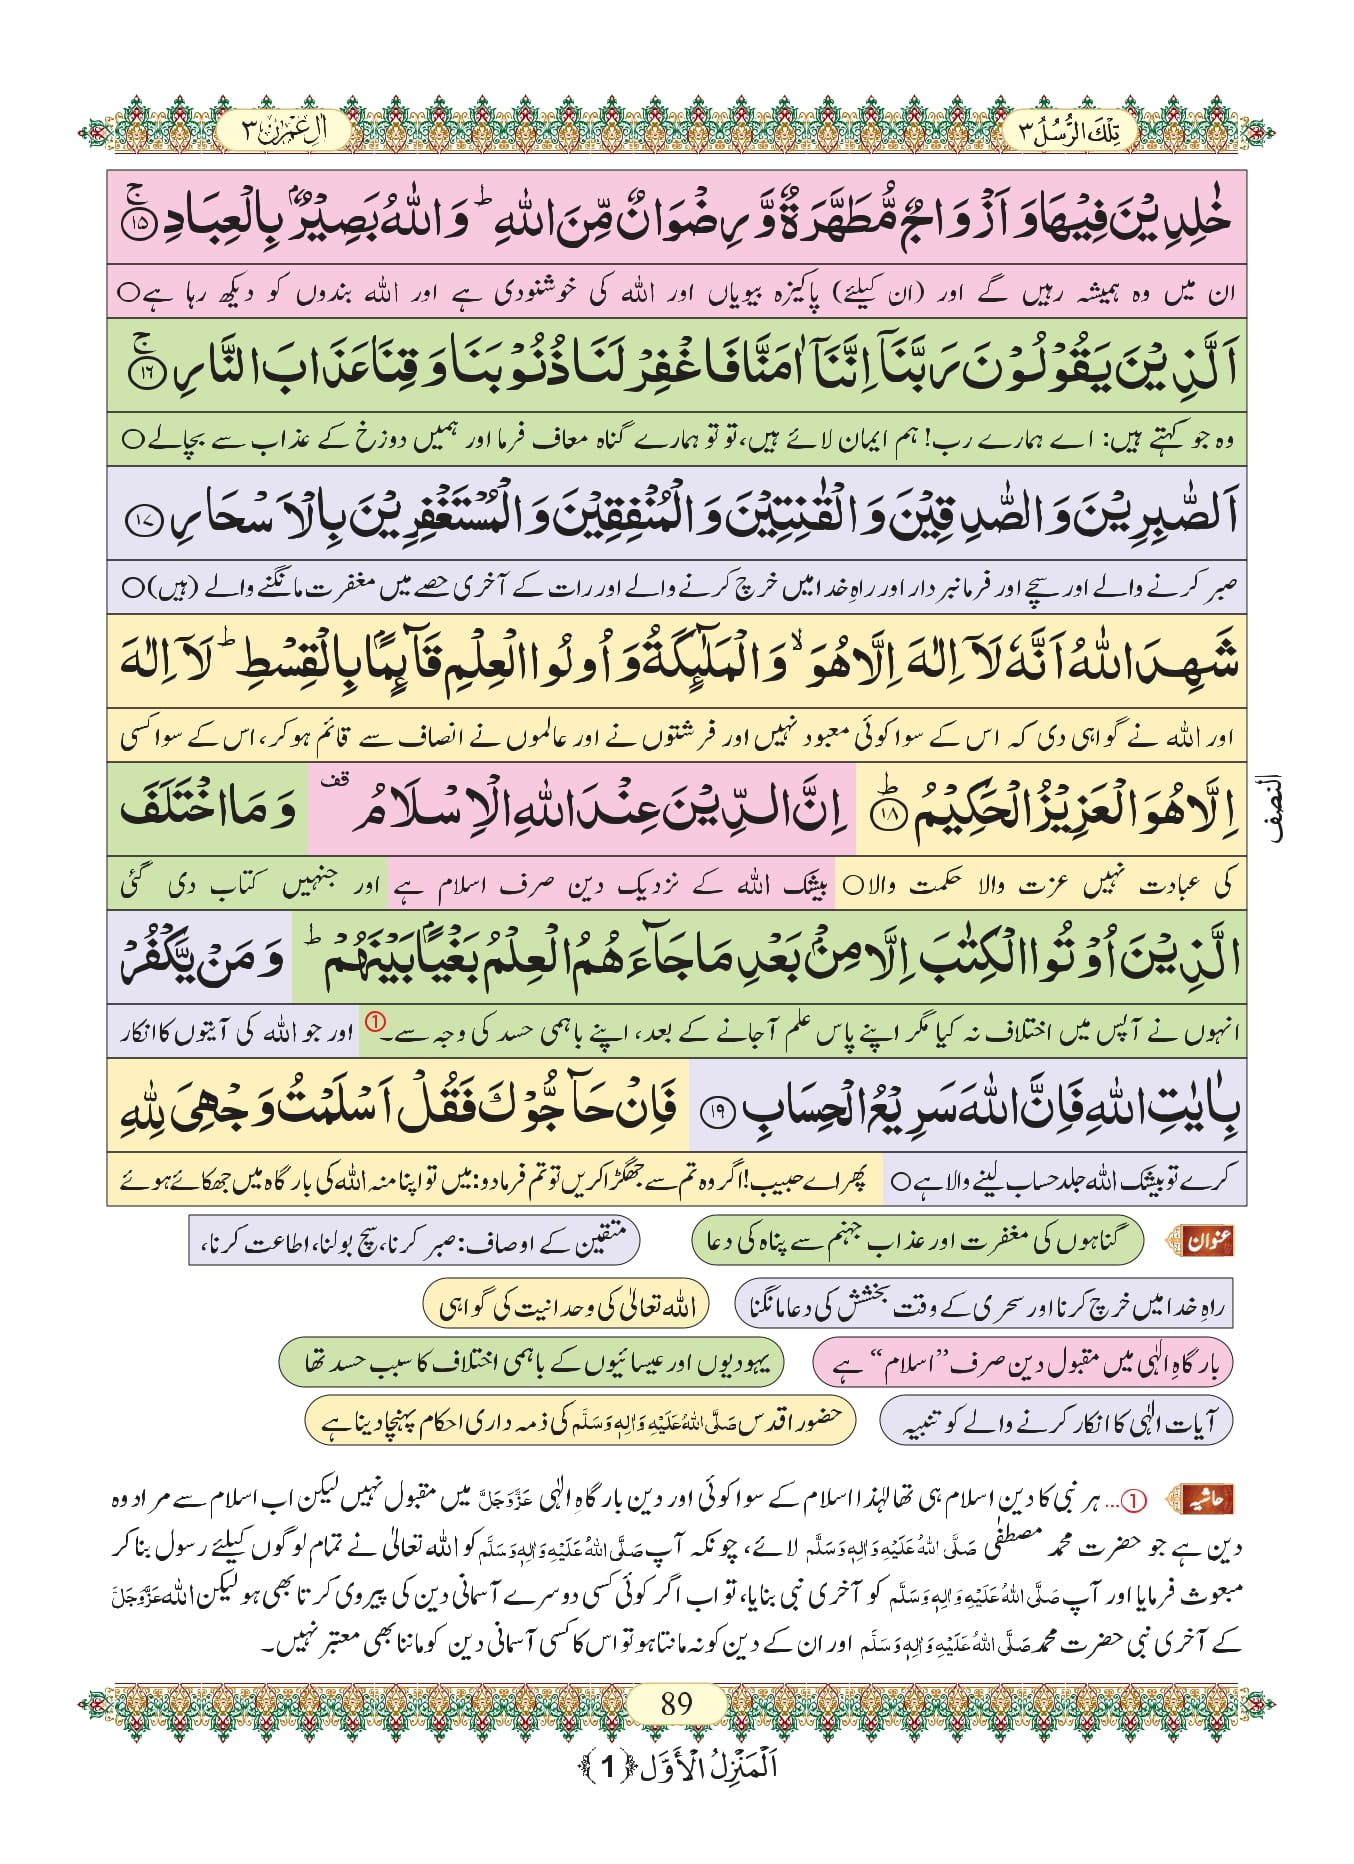 تِلْكَ الرُّسُلُ ٣
اٰلِ عِمْرٰن ٣
خٰلِدِیْنَ فِیْهَا وَ اَزْوَاجٌ مُّطَهَّرَةٌ وَّ رِضْوَانٌ مِّنَ اللّٰهِ ؕ وَ اللّٰهُ بَصِیْرٌۢ بِالْعِبَادِ ۚ﴿۱۵﴾
ان میں وہ ہمیشہ رہیں گے اور (ان کیلئے) پاکیزہ بیویاں اور اللہ کی خوشنودی ہے اور اللہ بندوں کو دیکھ رہا ہے○
اَلَّذِیْنَ یَقُوْلُوْنَ رَبَّنَاۤ اِنَّنَاۤ اٰمَنَّا فَاغْفِرْ لَنَا ذُنُوْبَنَا وَ قِنَا عَذَابَ النَّارِ ۚ﴿۱۶﴾
وہ جو کہتے ہیں: اے ہمارے رب! ہم ایمان لائے ہیں، تو تو ہمارے گناہ معاف فرما اور ہمیں دوزخ کے عذاب سے بچالے○
اَلصّٰبِرِیْنَ وَ الصّٰدِقِیْنَ وَ الْقٰنِتِیْنَ وَ الْمُنْفِقِیْنَ وَ الْمُسْتَغْفِرِیْنَ بِالْاَسْحَارِ ﴿۱۷﴾
صبر کرنے والے اور سچے اور فرمانبردار اور راہِ خدا میں خرچ کرنے والے اور رات کے آخری حصے میں مغفرت مانگنے والے (ہیں)○
شَهِدَ اللّٰهُ اَنَّهٗ لَاۤ اِلٰهَ اِلَّا هُوَ ۙ وَ الْمَلٰٓىِٕكَةُ وَ اُولُوا الْعِلْمِ قَآىِٕمًۢا بِالْقِسْطِ ؕ لَاۤ اِلٰهَ
اور اللہ نے گواہی دی کہ اس کے سوا کوئی معبود نہیں اور فرشتوں نے اور عالموں نے انصاف سے قائم ہو کر، اس کے سوا کسی
اِلَّا هُوَ الْعَزِیْزُ الْحَكِیْمُ ؕ﴿۱۸﴾ اِنَّ الدِّیْنَ عِنْدَ اللّٰهِ الْاِسْلَامُ قف وَ مَا اخْتَلَفَ
النصف
کی عبادت نہیں عزت والا حکمت والا○ بیشک اللہ کے نزدیک دین صرف اسلام ہے اور جنہیں کتاب دی گئی
الَّذِیْنَ اُوْتُوا الْكِتٰبَ اِلَّا مِنْۢ بَعْدِ مَا جَآءَهُمُ الْعِلْمُ بَغْیًۢا بَیْنَهُمْ ؕ وَ مَنْ یَّكْفُرْ
انہوں نے آپس میں اختلاف نہ کیا مگر اپنے پاس علم آجانے کے بعد، اپنے باہمی حسد کی وجہ سے۔① اور جو اللہ کی آیتوں کا انکار
بِاٰیٰتِ اللّٰهِ فَاِنَّ اللّٰهَ سَرِیْعُ الْحِسَابِ ﴿۱۹﴾ فَاِنْ حَآجُّوْكَ فَقُلْ اَسْلَمْتُ وَجْهِیَ لِلّٰهِ
کرے تو بیشک اللہ جلد حساب لینے والا ہے○ پھر اے حبیب! اگر وہ تم سے جھگڑا کریں تو تم فرمادو: میں تو اپنا منہ اللہ کی بارگاہ میں جھکائے ہوئے
عنوان گناہوں کی مغفرت اور عذاب جہنم سے پناہ کی دعا متقین کے اوصاف: صبر کرنا، سچ بولنا، اطاعت کرنا،
راہِ خدا میں خرچ کرنا اور سحری کے وقت بخشش کی دعا مانگنا اللہ تعالیٰ کی وحدانیت کی گواہی
بارگاہِ الٰہی میں مقبول دین صرف ”اسلام“ ہے یہودیوں اور عیسائیوں کے باہمی اختلاف کا سبب حسد تھا
آیات الٰہی کا انکار کرنے والے کو تنبیہ حضور اقدس صَلَّی اللّٰهُ عَلَیْهِ وَاٰلِهٖ وَسَلَّم کی ذمہ داری احکام پہنچا دینا ہے
حاشیہ ①... ہر نبی کا دین اسلام ہی تھا لہٰذا اسلام کے سوا کوئی اور دین بارگاہِ الٰہی عَزَّوَجَلَّ میں مقبول نہیں لیکن اب اسلام سے مراد وہ
دین ہے جو حضرت محمد مصطفٰی صَلَّی اللّٰهُ عَلَیْهِ وَاٰلِهٖ وَسَلَّم لائے، چونکہ آپ صَلَّی اللّٰهُ عَلَیْهِ وَاٰلِهٖ وَسَلَّم کو اللہ تعالیٰ نے تمام لوگوں کیلئے رسول بنا کر
مبعوث فرمایا اور آپ صَلَّی اللّٰهُ عَلَیْهِ وَاٰلِهٖ وَسَلَّم کو آخری نبی بنایا، تو اب اگر کوئی کسی دوسرے آسمانی دین کی پیروی کرتا بھی ہو لیکن اللہ عَزَّوَجَلَّ
کے آخری نبی حضرت محمد صَلَّی اللّٰهُ عَلَیْهِ وَاٰلِهٖ وَسَلَّم اور ان کے دین کو نہ مانتا ہو تو اس کا کسی آسمانی دین کو ماننا بھی معتبر نہیں۔
89
اَلْمَنْزِلُ الْأَوَّل ﴿1﴾